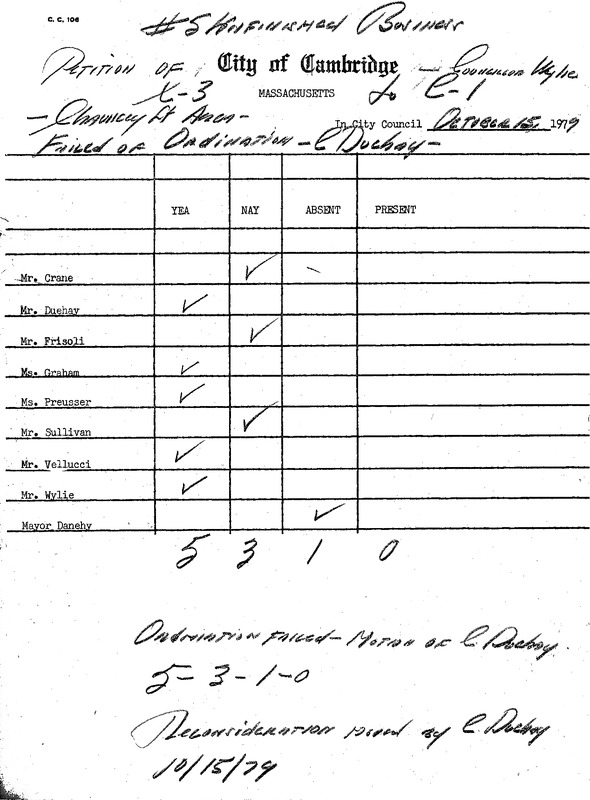 C. C. 106
#5 Unfinished Business
Petition of City of Cambridge — Councillor Wylie
X-3 MASSACHUSETTS to C-1
— Chauncey St Area —
In City Council October 15, 1979
Failed of Ordination — C Duehay —
YEA NAY ABSENT PRESENT
Mr. Crane ✓
Mr. Duehay ✓
Mr. Frisoli ✓
Ms. Graham ✓
Ms. Preusser ✓
Mr. Sullivan ✓
Mr. Vellucci ✓
Mr. Wylie ✓
Mayor Danehy ✓
5 3 1 0
Ordination Failed — Motion of C. Duehay.
5-3-1-0
Reconsideration moved by C. Duehay
10/15/79